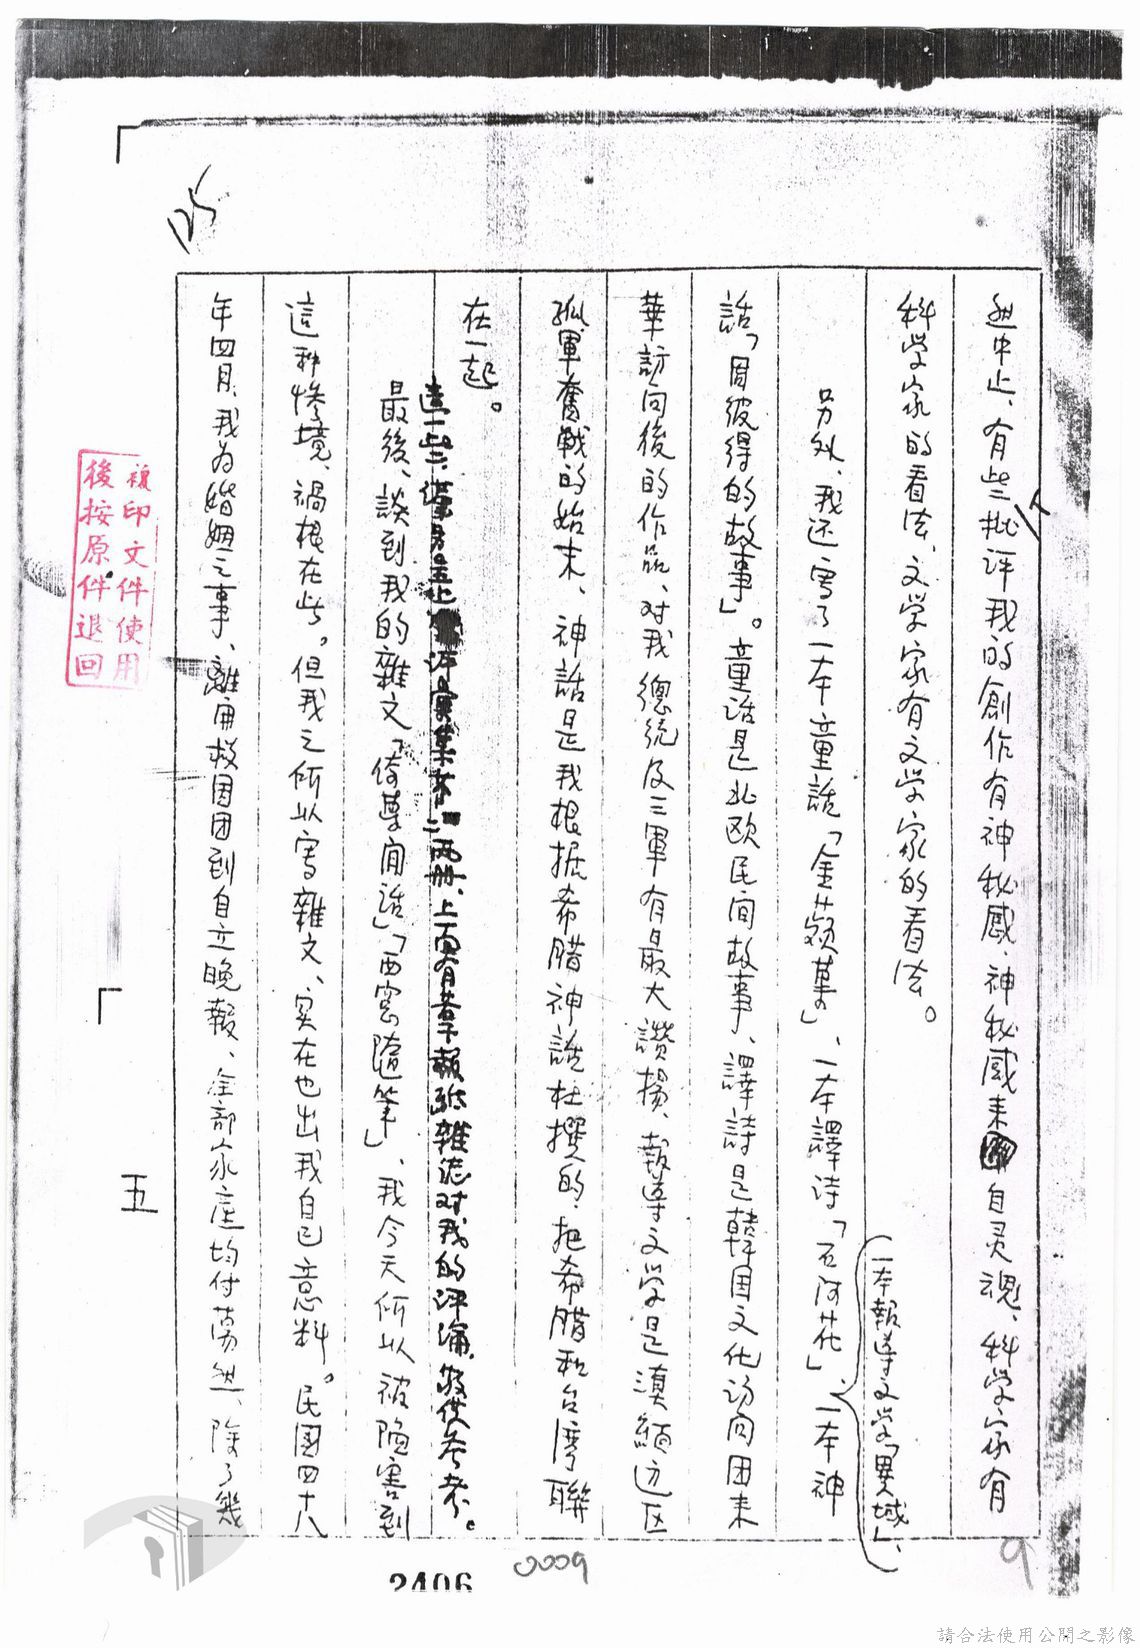 中止、有些批評我的創作有神秘感、神秘感来自灵魂、科学家有
科学家的看法、文学家有文学家的看法。
另外、我还写了一本童話「金蘋菓」、一本譯诗「石河花」、一本神
一本報導文学「異域」、
話「周彼得的故事」。童话是北欧民间故事、譯詩是韓国文化访问团来
華訪问後的作品、对我總統及三軍有最大讚揚、報導文学是滇緬边区
孤軍奮戰的始末、神話是我根据希腊神話杜撰的、把希腊和台湾聯
在一起。
上面有若干報紙雜誌对我的评論、敬供参考。
最後、談到我的雜文「倚夢闲话」「西窓隨筆」、我今天所以被陷害到
這种慘境、禍根在此。但我之所以写雜文、实在也出我自己意料。民國四十八
年四月、我为婚姻之事、離開救国团到自立晚報、全部家產均付蕩然、除了幾
五
複印文件使用
後按原件退回
2406
0009
9
請合法使用公開之影像